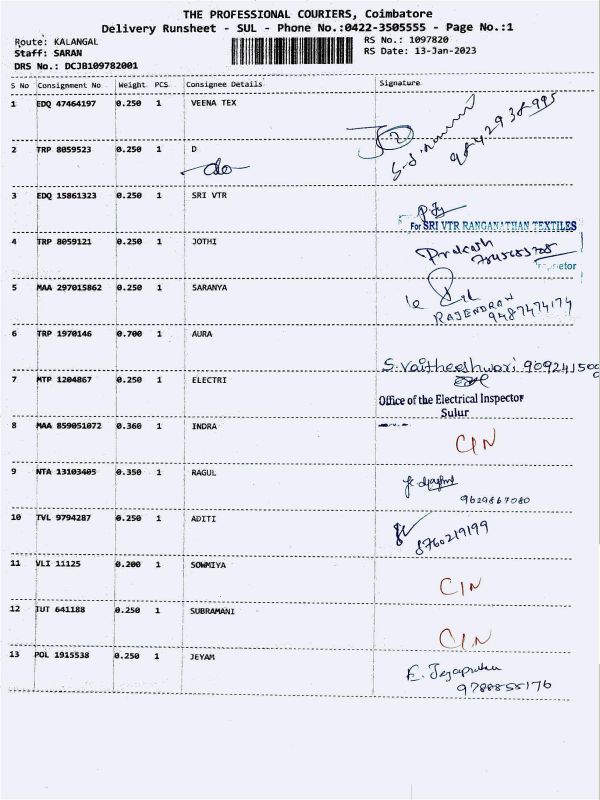 THE PROFESSIONAL COURIERS, Coimbatore
Delivery Runsheet - SUL - Phone No.:0422-3505555 - Page No.:1
Route: KALANGAL RS No.: 1097820
Staff: SARAN RS Date: 13-Jan-2023
DRS No.: DCJB109782001
S No Consignment No Weight PCS Consignee Details Signature
1 EDQ 47464197 0.250 1 VEENA TEX
2 TRP 8059523 0.250 1 D
do
3 EDQ 15861323 0.250 1 SRI VTR
For SRI VTR RANGANATHAN TEXTILES
4 TRP 8059121 0.250 1 JOTHI Prakash
5 MAA 297015862 0.250 1 SARANYA
RAJENDRAN
9487474174
6 TRP 1970146 0.700 1 AURA
S. Vaitheeshwari 9092415000
7 MTP 1204867 0.250 1 ELECTRI
Office of the Electrical Inspector
Sulur
8 MAA 859051072 0.360 1 INDRA CIN
9 NTA 13103405 0.350 1 RAGUL
9629867080
10 TVL 9794287 0.250 1 ADITI 8760219199
11 VLI 11125 0.200 1 SOWMIYA CIN
12 TUT 641188 0.250 1 SUBRAMANI CIN
13 POL 1915538 0.250 1 JEYAM
9788855176